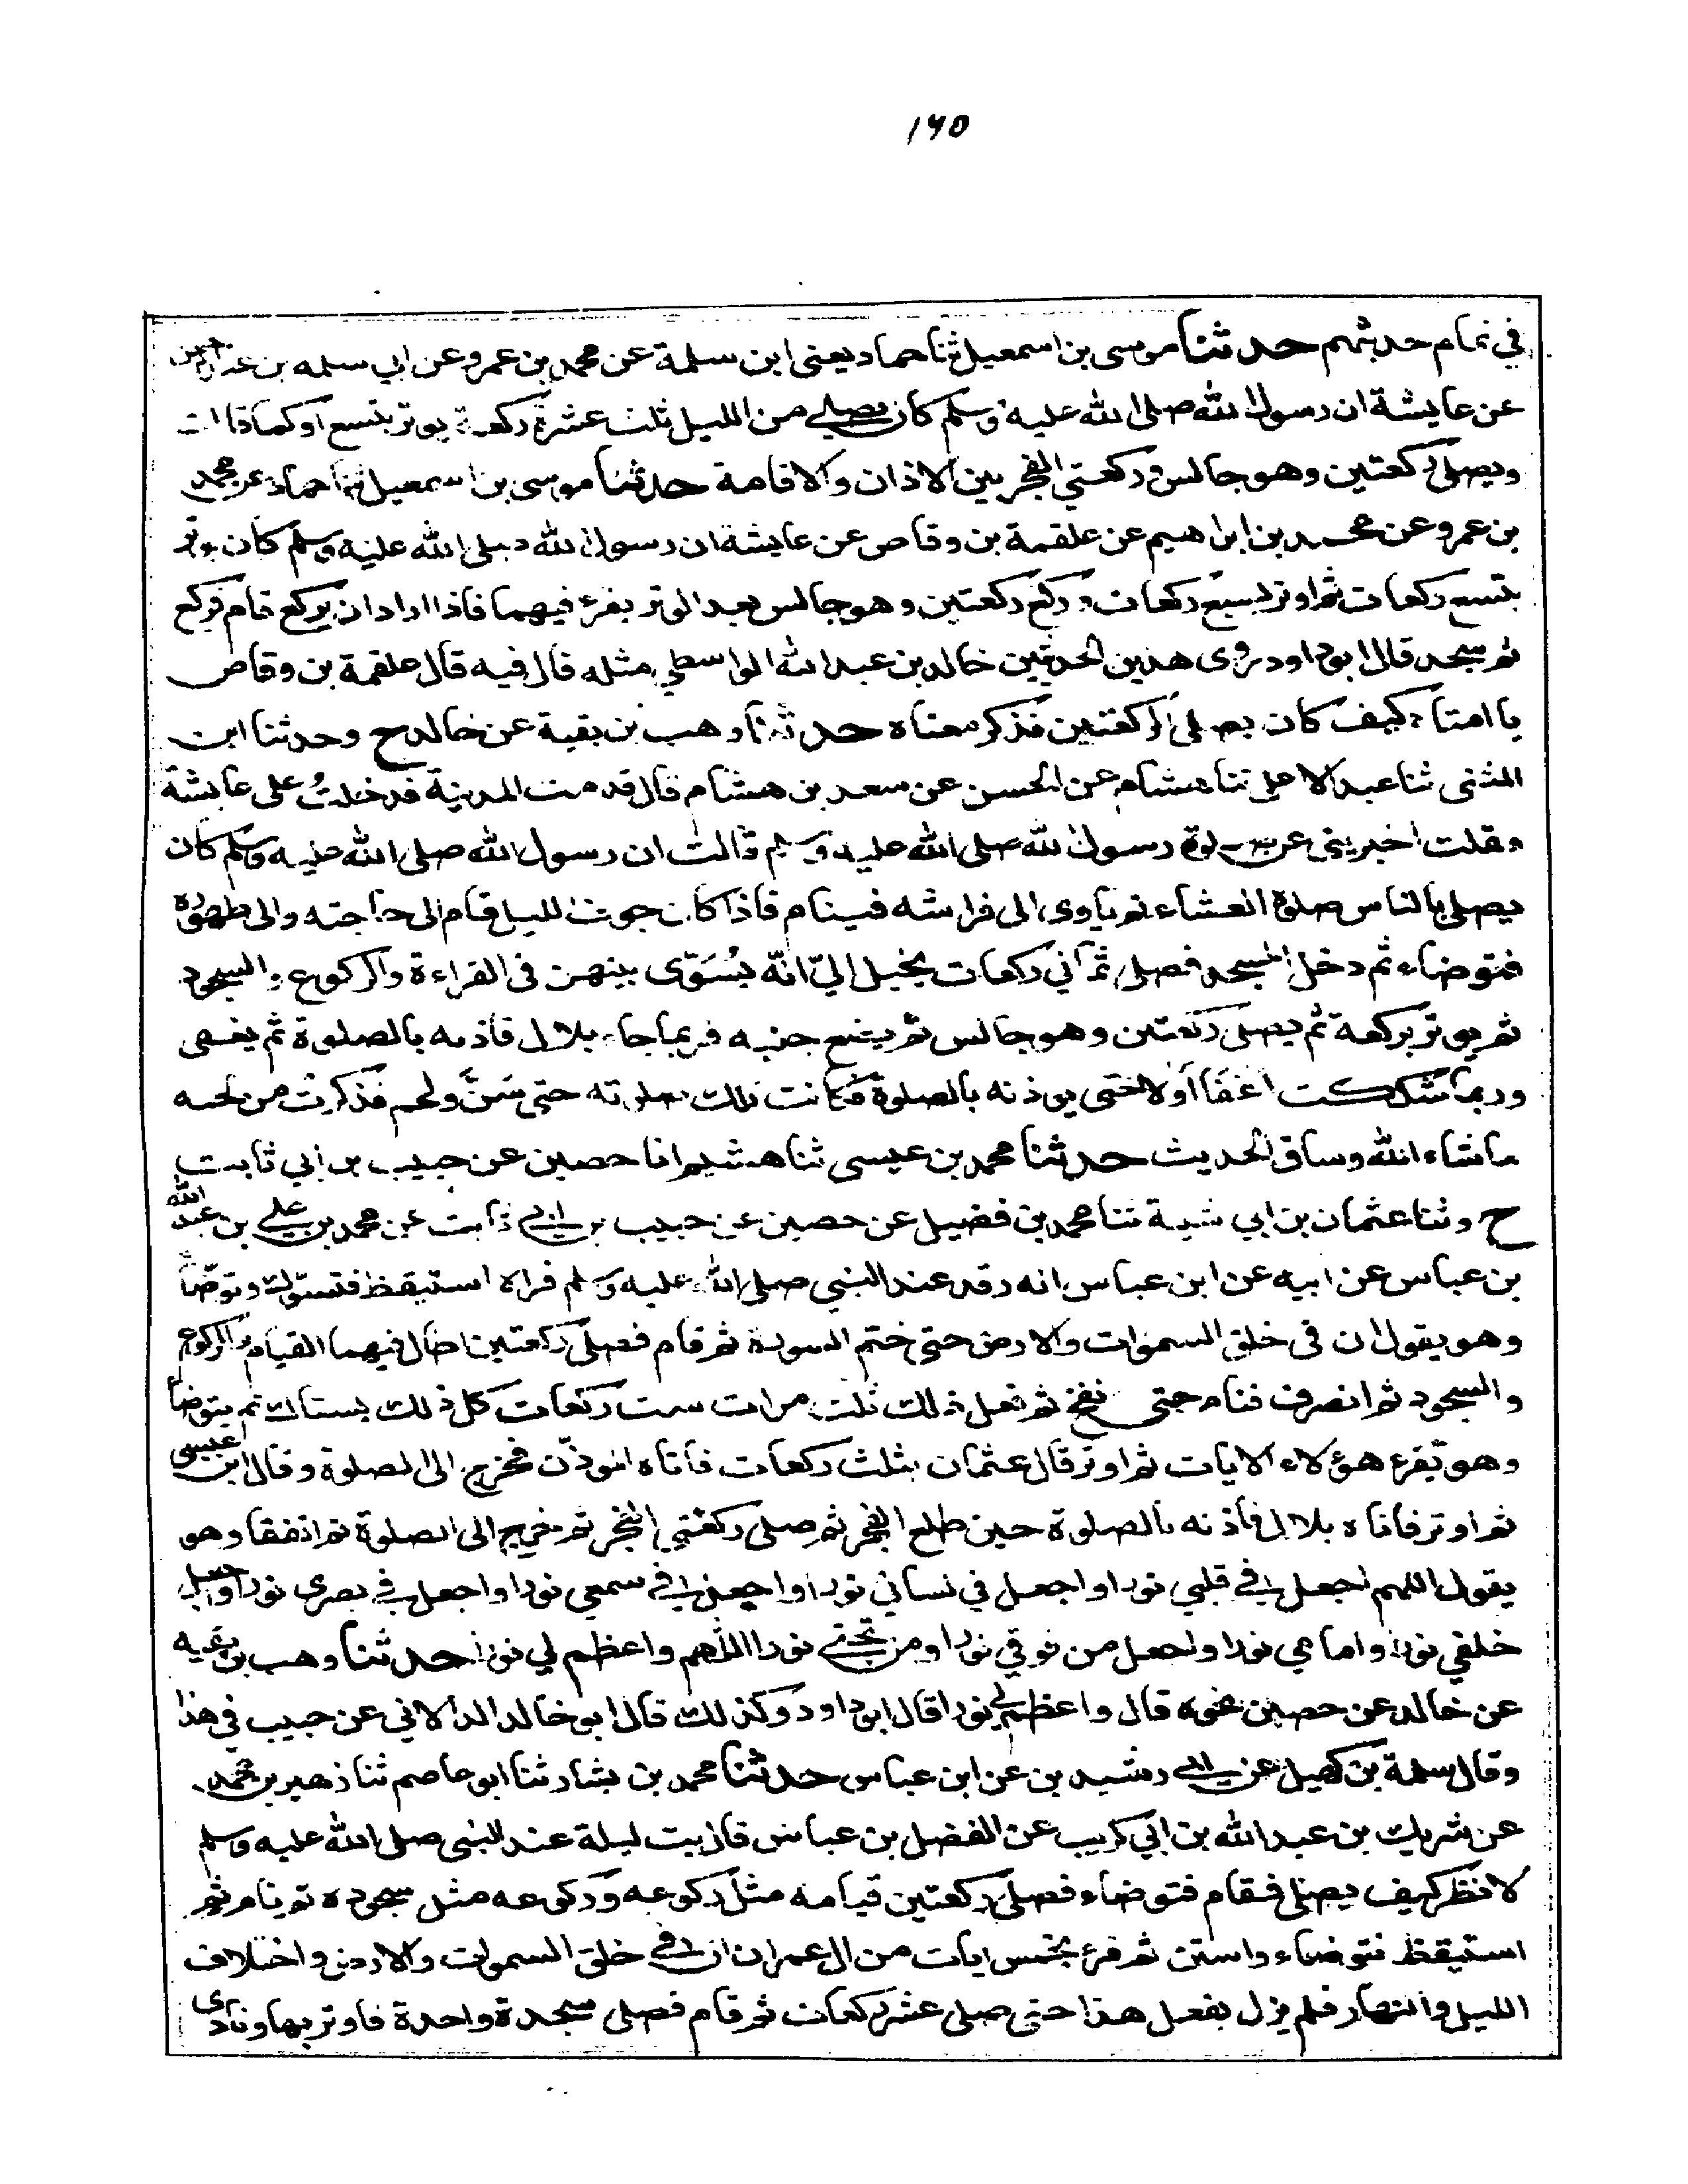 ١٦٥
في تمام حديثهم حدثنا موسى بن اسمعيل ثنا حماد يعنى ابن سلمة عن محمد بن عمرو عن ابي سلمه بن عبد الرحمن
عن عايشة ان رسول الله صلى الله عليه وسلم كان يصلي من الليل ثلث عشرة ركعة يوتر بتسع او كما قالت
ويصلي ركعتين وهو جالس وركعتي الفجر بين الاذان والاقامة حدثنا موسى بن اسمعيل ثنا حماد عن محمد
بن عمرو عن محمد بن ابراهيم عن علقمة بن وقاص عن عايشة ان رسول الله صلى الله عليه وسلم كان يوتر
بتسع ركعات ثم اوتر بسبع ركعات وركع ركعتين وهو جالس بعد الوتر يقرء فيهما فاذا اراد ان يركع قام فركع
ثم سجد قال ابو داود روى هذين الحديثين خالد بن عبد الله الواسطي مثله قال فيه قال علقمة بن وقاص
يا امتاه كيف كان يصلي الركعتين فذكر معناه حدثنا وهب بن بقية عن خالد ح وحدثنا ابن
المثنى ثنا عبد الاعلى ثنا هشام عن الحسن عن سعد بن هشام قال قدمت المدينة فدخلتُ على عايشة
وقلت اخبريني عن صلوة رسول الله صلى الله عليه وسلم قالت ان رسول الله صلى الله عليه وسلم كان
يصلي بالناس صلوة العشاء ثم ياوى الى فراشه فينام فاذا كان جوف الليل قام الى حاجته والى طهوره
فتوضاء ثم دخل المسجد فصلى ثماني ركعات يخيل اليّ انّه يُسَوّى بينهن فى القراءة والركوع والسجود
ثم يوتر بركعة ثم يصلى ركعتين وهو جالس ثم يضع جنبه فربما جاء بلال فاذنه بالصلوة ثم يغفى
وربما شككت اغفا اَولا حتى يوذنه بالصلوة فكانت تلك صلوته حتى سَنَّ ولحم فذكرت من لحمه
ماشاء الله وساق الحديث حدثنا محمد بن عيسى ثنا هشيم انا حصين عن حبيب بن ابي ثابت
ح وثنا عثمان بن ابي شيبة ثنا محمد بن فضيل عن حصين عن حبيب بن ابي ثابت عن محمد بن علي بن عبد الله
بن عباس عن ابيه عن ابن عباس انه رقد عند النبي صلى الله عليه وسلم فراه استيقظ فتسوّك وتوضّاً
وهو يقول ان فى خلق السموات والارض حتى ختم السورة ثم قام فصلى ركعتين اطال فيهما القيام والركوع
والسجود ثم انصرف فنام حتى نفخ ثم فعل ذلك ثلث مرات ست ركعات كل ذلك يستاك ثم يتوضأ
وهو يقرء هؤلاء الايات ثم اوتر قال عثمان بثلث ركعات فاتاه الموذّن فخرج الى الصلوة وقال ابن عيسى
ثم اوتر فاتاه بلال فاذنه بالصلوة حين طلع الفجر ثم صلى ركعتي الفجر ثم خرج الى الصلوة ثم اتفقا وهو
يقول اللهم اجعل في قلبي نورا واجعل في لساني نورا واجعل في سمعي نورا واجعل في بصري نورا واجعل
خلفي نورا وامامي نورا واجعل من فوقي نورا ومن تحتي نورا اللهم واعظم لي نورا حدثنا وهب بن بقيه
عن خالد عن حصين نحوه قال واعظم لي نورا قال ابو داود وكذلك قال ابو خالد الدالاني عن حبيب في هذا
وقال سلمة بن كهيل عن ابي رشدين عن ابن عباس حدثنا محمد بن بشار ثنا ابو عاصم ثنا زهير بن محمد
عن شريك بن عبد الله بن ابي كريب عن الفضل بن عباس قال بت ليلة عند النبي صلى الله عليه وسلم
لانظر كيف يصلي فقام فتوضاء فصلى ركعتين قيامه مثل ركوعه وركوعه مثل سجوده ثم نام ثم
استيقظ فتوضاء واستن ثم قرء بخمس ايات من ال عمران ان في خلق السموات والارض واختلاف
الليل والنهار فلم يزل يفعل هذا حتى صلى عشر ركعات ثم قام فصلى سجدة واحدة فاوتر بها ونادى